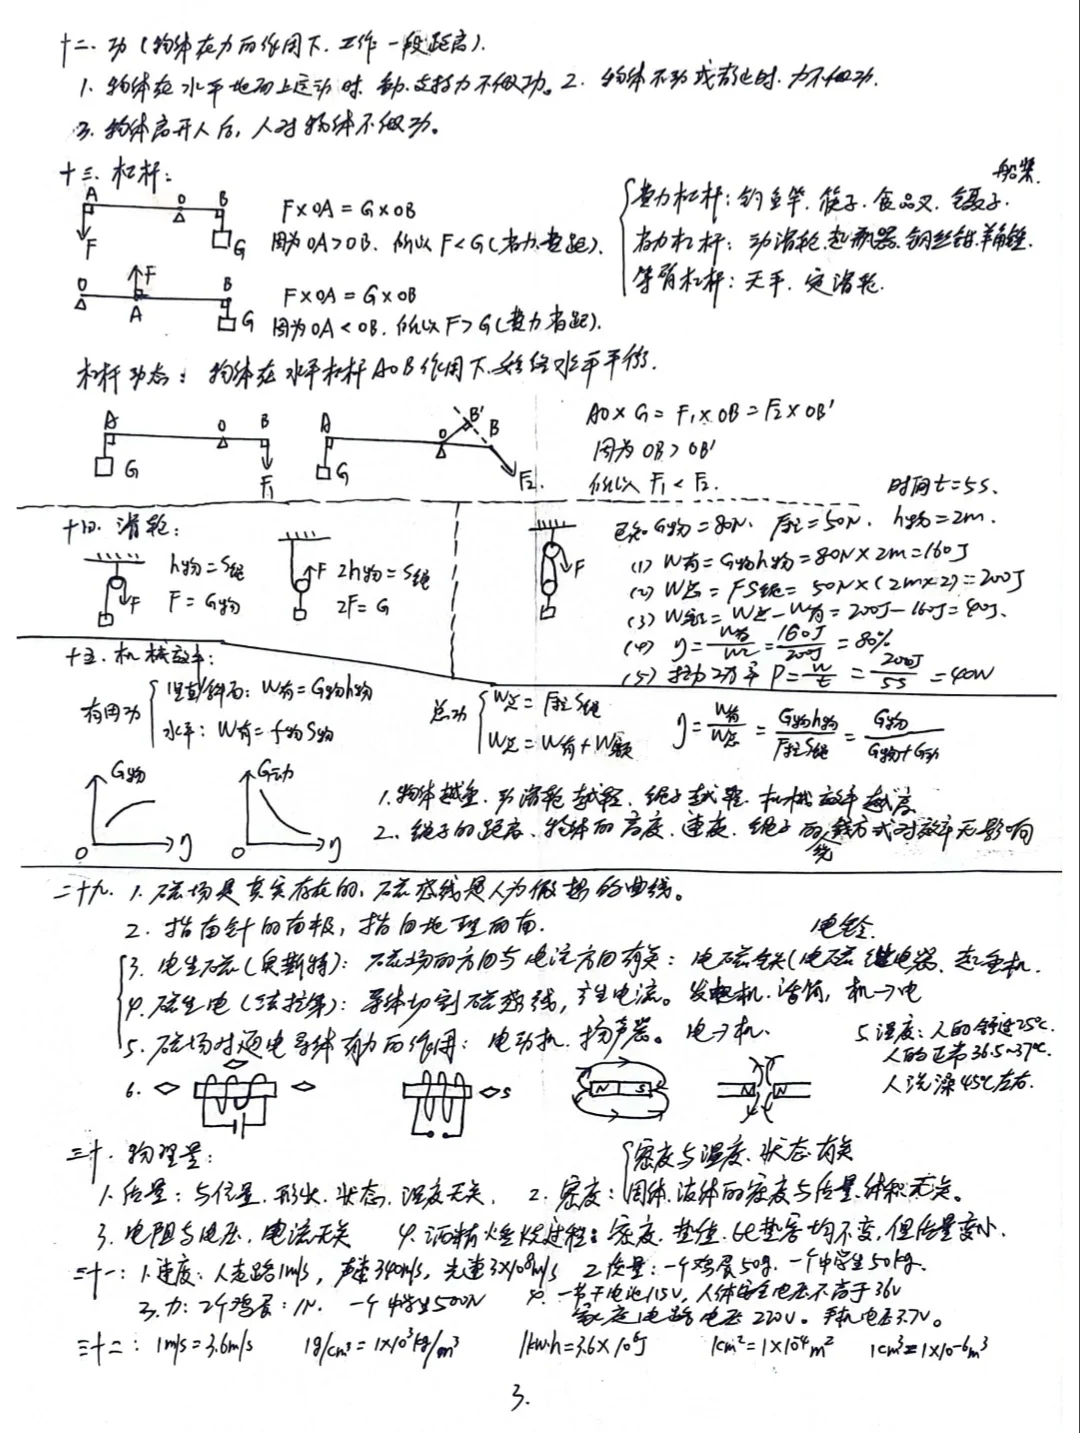 十二. 功 (物体在力的作用下. 工作一段距离).
1. 物体在水平地面上运动时. 重力. 支持力不做功。 2. 物体不动或静止时. 力不做功.
3. 物体离开人后, 人对物体不做功。
十三. 杠杆:
A O B F G
F×OA = G×OB
因为OA>OB. 所以F<G(省力. 费距).
O F B A G
F×OA = G×OB
因为OA<OB. 所以F>G(费力省距).
船桨.
费力杠杆: 钓鱼竿. 筷子. 食品叉. 镊子.
省力杠杆: 动滑轮. 起瓶器. 钢丝钳. 羊角锤.
等臂杠杆: 天平. 定滑轮.
杠杆动态: 物体在水平杠杆AOB作用下. 始终水平平衡.
A O B G F1
A O B' B G F2.
AO×G = F1×OB = F2×OB'
因为OB>OB'
所以F1<F2.
十四. 滑轮:
F
h物=S绳
F=G物
F
2h物=S绳
2F=G
F
时间t=5s.
已知G物=80N. F拉=50N. h物=2m.
(1) W有=G物h物=80N×2m=160J
(2) W总=FS绳=50N×(2m×2)=200J
(3) W额=W总-W有=200J-160J=40J.
(4) η=W有/W总=160J/200J=80%
(5) 拉力功率P=W/t=200J/5s=40W
十五. 机械效率:
有用功
竖直/斜面: W有=G物h物
水平: W有=f物S物
总功
W总=F拉S绳
W总=W有+W额
η=W有/W总=G物h物/F拉S绳=G物/G物+G动
G物 O η
G动 O η
1. 物体越重. 动滑轮越轻. 绳子越轻. 机械效率越高
2. 绳子的距离. 物体的高度. 速度. 绳子的绕方式对效率无影响
绕
二十九. 1. 磁场是真实存在的. 磁感线是人为假想的曲线。
2. 指南针的南极, 指向地理的南.
电铃.
3. 电生磁(奥斯特): 磁场的方向与电流方向有关: 电磁铁(电磁继电器. 起重机.
4. 磁生电(法拉第): 导体切割磁感线, 产生电流。 发电机. 话筒, 机→电
5. 磁场对通电导体有力的作用: 电动机. 扬声器。 电→机.
5. 温度: 人的舒适25℃.
人的正常36.5~37℃.
人洗澡45℃左右.
6.
S
N S
N N
三十. 物理量:
密度与温度. 状态有关
1. 质量: 与位置. 形状. 状态. 温度无关. 2. 密度: 固体. 液体的密度与质量. 体积无关。
3. 电阻与电压, 电流无关 4. 酒精燃烧过程: 密度. 热值. 比热容均不变, 但质量变小.
三十一: 1. 速度: 人走路1m/s, 声速340m/s, 光速3×10⁸m/s 2. 质量: 一个鸡蛋50g. 一个中学生50kg.
3. 力: 2个鸡蛋: 1N. 一个中学生500N 4. 一节干电池1.5V, 人体安全电压不高于36V
家庭电路电压220V. 手机电压3.7V。
三十二: 1m/s=3.6m/s 1g/cm³=1×10³kg/m³ 1kw·h=3.6×10⁶J 1cm²=1×10⁻⁴m² 1cm³=1×10⁻⁶m³
3.